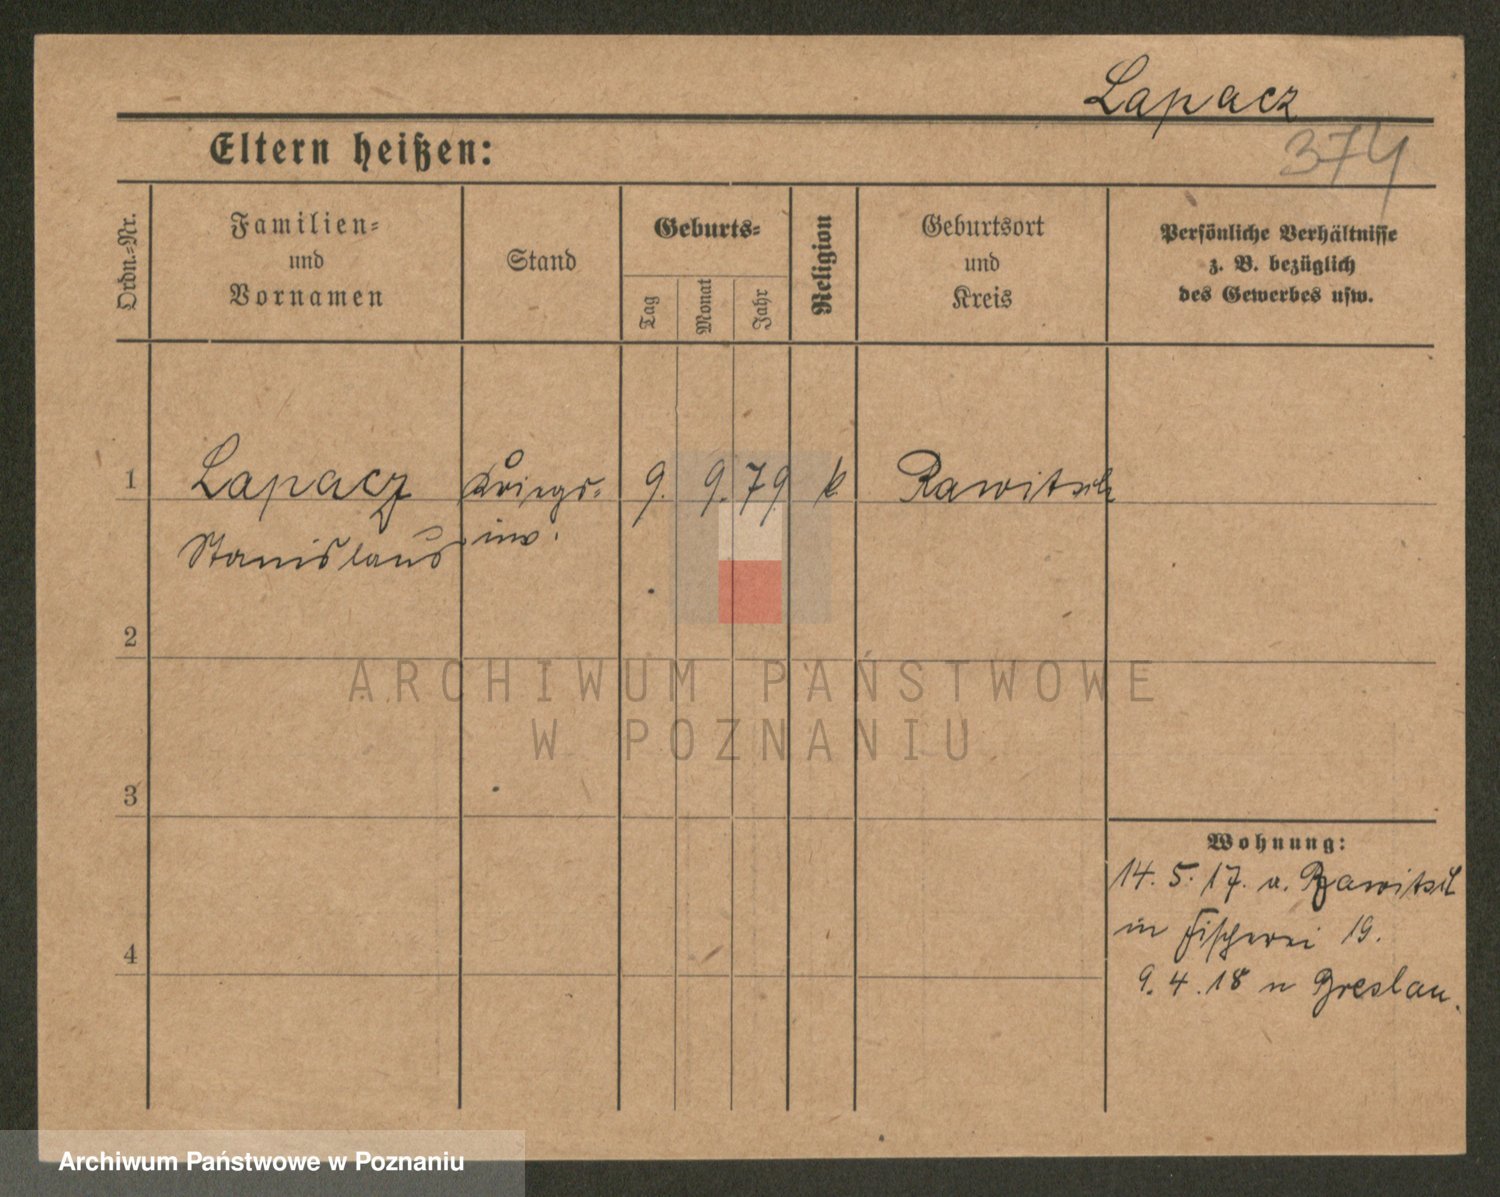 Lapacz
374
Eltern heißen:
Ordn.-Nr.
Familien-
und
Vornamen
Stand
Geburts-
Tag
Monat
Jahr
Religion
Geburtsort
und
Kreis
Persönliche Verhältnisse
z. B. bezüglich
des Gewerbes usw.
1 Lapacz Kriegs- 9. 9. 79 k. Rawitsch
Stanislaus inv.
2
3
4
Wohnung:
14. 5. 17. a. Rawitsch
in Fischerei 19.
9. 4. 18 n Breslau.
ARCHIWUM PAŃSTWOWE
W POZNANIU
Archiwum Państwowe w Poznaniu